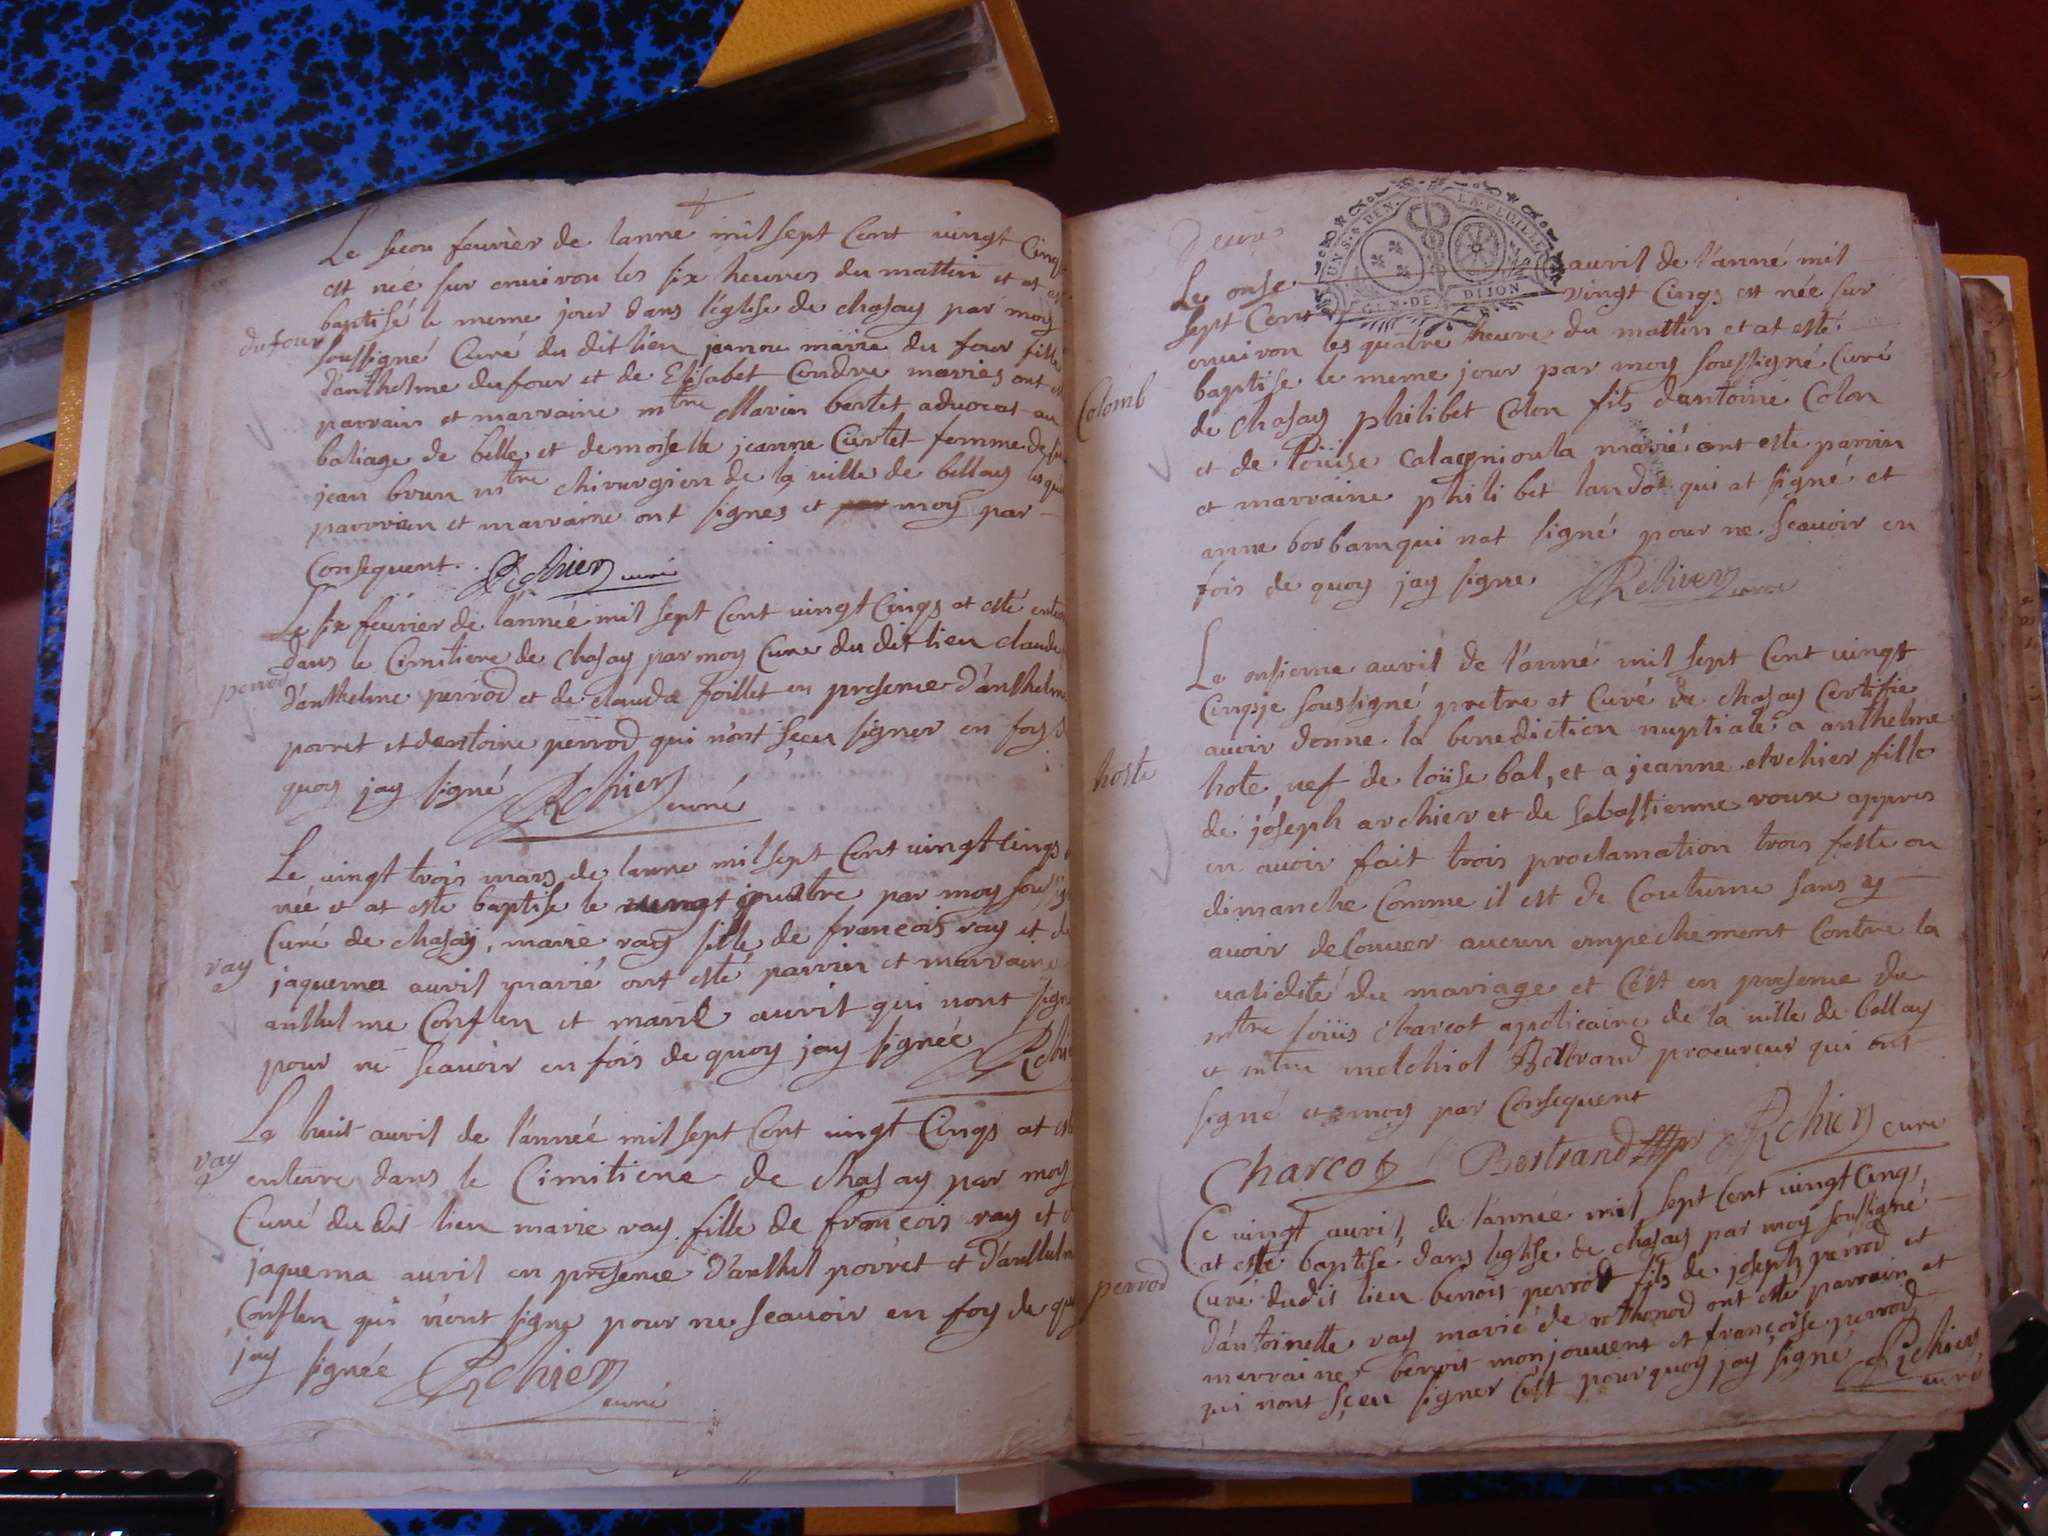 Le secon feurier de lanne mil sept Cent vingt Cinq
est née sur enuiron les six heures du mattin et at
baptisé le meme jour dans l'eglise de chasay par moy
dufour
soussigné Curé du dit lieu jeanne marie du four fille
d'anthelme dufour et de Elisabet Condre mariés ont
parrain et marraine mtre Marin bertet aduocat au
baliage de belle et demoiselle jeanne Curtet femme de
jean brun mtre chirurgien de la uille de bellay
parrrin et marraine ont signés et par moy par
Consequent. Rchier curé
Le six feurier de l'année mil sept Cent uingt Cinqs at esté
dans le Cimitiere de chasay par moy Cure du dit lieu claude
perrod
d'anthelme perrod et de clauda foillet en presence d'anthelme
porret et dantoine perrod qui n'ont sceu signer en foy
quoy jay signé Rchier curé
Le uingt trois mars de lanne mil sept Cent uingt Cinqs
née et at este baptise le uingt quatre par moy
Curé de chasay, marie ray fille de francois ray et
ray
jaquema auril marié ont esté parrin et marraine
anthelme Conflen et marie auril qui nont
pour ne scauoir en fois de quoy jay signée
Le huit auril de l'année mil sept Cent uingt Cinqs at
ray
enterre dans le Cimitiere de chasay par moy
Curé dudit lieu marie ray fille de francois ray et
jaquema auril en presence d'anthel porret et
Conflen qui n'ont signe pour ne scauoir en foy de
jay signée Rchier
curé
UNS. DEN. LA. FEUILLE
GEN. DE DIJON
Le onse auril de l'anné mil
sept Cent vingt Cinqs est née sur
enuiron les quatre heure du mattin et at esté
baptise le meme jour par moy soussigné Curé
Colomb
de chasay philibet Colon fils dantoine Colon
et de Loüise marié ont este parrin
et marraine philibet landoz qui at signé et
anne borbam qui nat signé pour ne scauoir en
fois de quoy jay signe Rchier curé
Le onsieme auril de l'anné mil sept Cent uingt
Cinqs je soussigné pretre et Curé de chasay Certifie
auoir donne la benediction nuptiale a anthelme
hoste
hote, uef de loüse bal, et a jeanne Archier fille
de joseph archier et de sebastienne roux appres
en auoir fait trois proclamation trois feste ou
dimanche Comme il est de Coutume sans y
auoir deCouuer aucun empechement Contre la
ualidité du mariage et C'est en presence de
mtre loüis charcot apoticaire de la uille de bellay
et mtre melchiol Bertrand procureur qui ont
signé et moy par Consequent
Charcot Bertrand Rchier cure
Ce uingt auril de l'année mil sept Cent uingt Cinqs
at esté baptisé dans leglise de chasay par moy soussigné
perrod
Curé dudit lieu benoit perrod fils de joseph perrod et
d'antoinette ray marié de rothonod ont esté parrain et
marraine benoit monjouuent et françoise perrod
qui nont sceu signer C'est pourquoy jay signé Rchier
curé